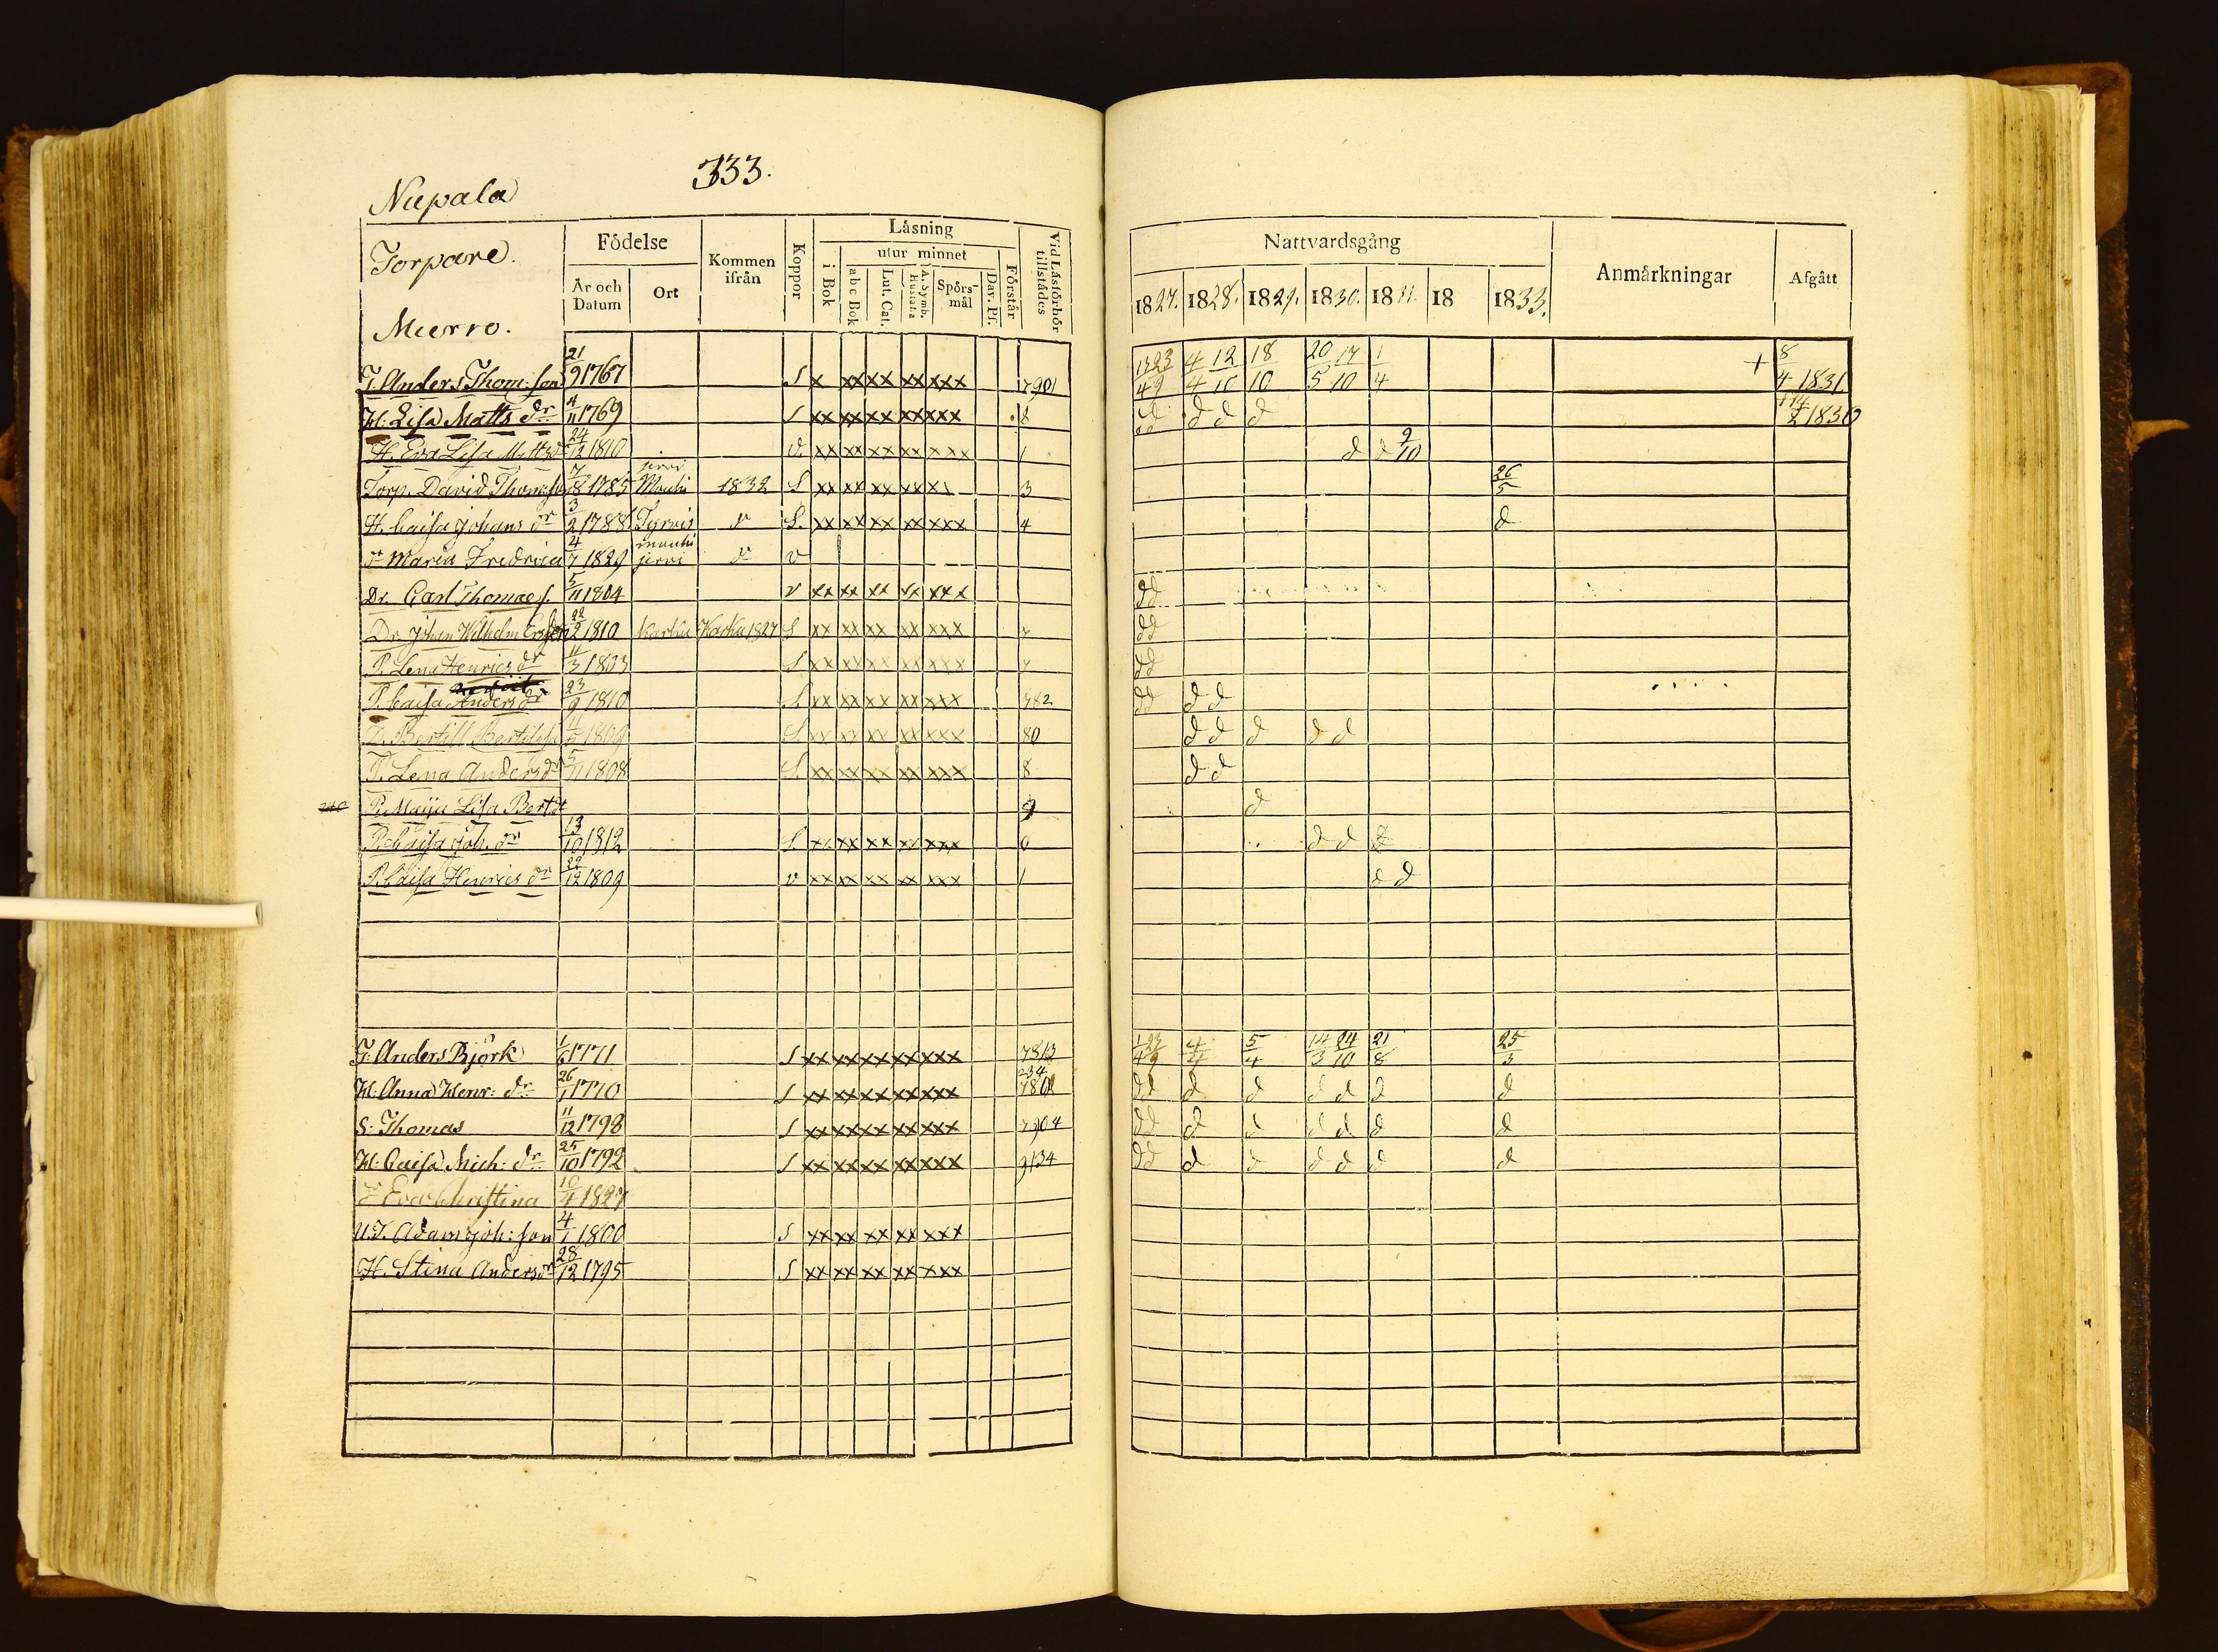 333.
Nupala
Torpare.
Murro.
Födelse
År och Datum
Ort
Kommen ifrån
Koppor
Läsning
i Bok
utur minnet
abc Bok
Lut. Cat.
A. Symb. Hustafla
Spörsmål
Dav. Ps.
Förstår
Vid Läsförhör tillstädes
Nattvardsgång
1827. 1828. 1829. 1830. 1831. 18 1833.
Anmärkningar
Afgått
T. Anders Thom: son 21/9 1767 S x xx xx xx xxx 7901 4 12/4 10 18/10 20 17/5 10 1/4 + 8/4 1831
H: Lisa Matts dr 4/11 1769 S xx xx xx xx xxx 8 dd d d d 1830
H. Eva Lisa Matts dr 24/12 1810 v xx xx xx xx xxx 1 d d 9/10
Torp. David Thomas son 7/8 1785 Mouhijervi 1832 S xx xx xx xx 3 26/5
H. Caisa Johans dr 3/2 1788 Tyrvis d S. xx xx xx xx xxx 4 d
dr Maria Fredrica 4/7 1829 mouhijervi d v
Dr. Carl Thomae s. 5/11 1804 v xx xx xx xx xxx dd
Dr Johan Wilhelm 22/2 1810 Karku Karku 1827 S xx xx xx xx xxx 7 dd
P. Lena Henrics dr 11/3 1803 S xx xx xx xx xxx 7 dd
P. Caisa Anders dr 23/9 1810 S xx xx xx xx xxx 782 dd d d
D. Bertill Bertilss 1809 S xx xx xx xx xxx 80 d d d d d
P. Lena Anders dr 5/11 1808 S. xx xx xx xx xxx 8 d d
P. Maija Lisa Bert dr 9 d
P. Caisa Joh. dr 13/10 1812 S. xx xx xx xx xxx 0 d d d
P. Caisa Henrics dr 22/12 1809 v xx xx xx xx xxx 1 d d
T: Anders Björk 1/6 1771 S xx xx xx xx xxx 7813 4/4 5/4 14 24/3 10 21/8 25/3
H: Anna Henr: dr 26/1 1770 S xx xx xx xx xxx 234 dd d d d d d d
S: Thomas 11/12 1798 S xx xx xx xx xxx 7904 dd d d d d d d
H: Caisa Mich: dr 25/10 1792 S xx xx xx xx xxx 9134 dd d d d d d d
dr Eva Christina 10/4 1827
U.T. Adam Joh: son 4/1 1800 S xx xx xx xx xxx
H. Stina Anders dr 28/12 1795 S xx xx xx xx xxx